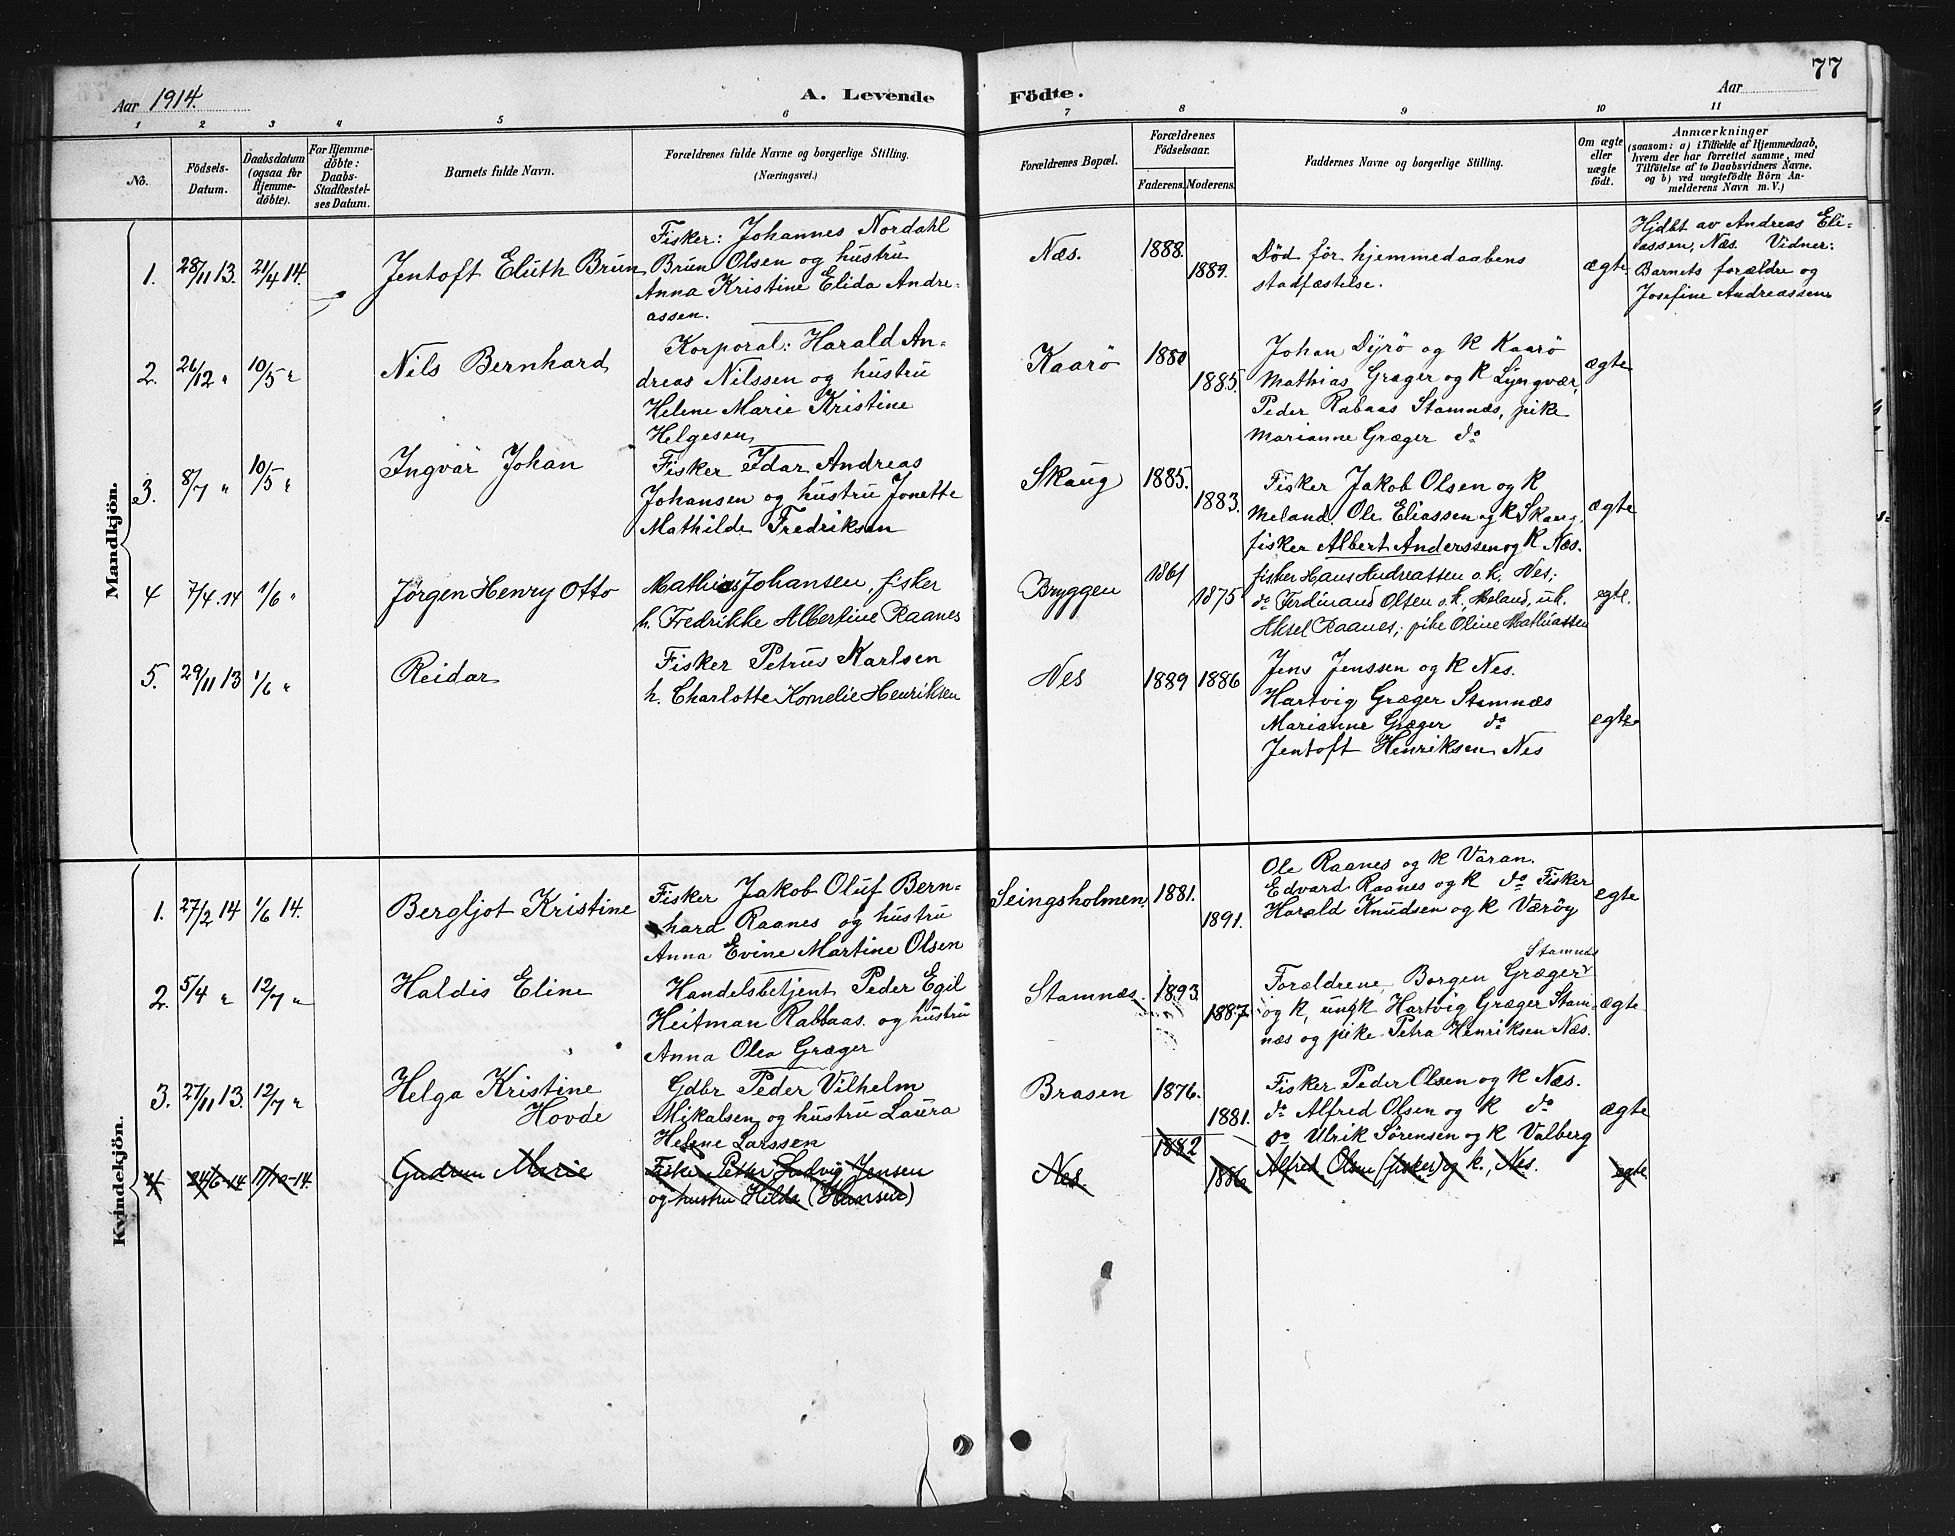 77
Aar 1914.
A. Levende Födte.
Aar
1 2 3 4 5 6 7 8 9 10 11
No.
Födsels-
Datum.
Daabsdatum
(ogsaa for
Hjemme-
döbte).
For Hjemme-
döbte:
Daabs-
Stadfæstel-
ses Datum.
Barnets fulde Navn.
Forældrenes fulde Navne og borgerlige Stilling.
(Næringsvei.)
Forældrenes Bopæl.
Forældrenes
Födselsaar.
Faderens. Moderens.
Faddernes Navne og borgerlige Stilling.
Om ægte
eller
uægte
født.
Anmærkninger
(saasom: a) i Tilfælde af Hjemmedaab,
hvem der har forrettet samme, med
Tilföielse af to Daabsvidners Navne.
og b) ved uægtefödte Börn An-
melderens Navn m. V.)
Mandkjön.
1. 28/11 13. 21/4 14. Jentoft Eluth Brun
Fisker: Johannes Nordahl
Brun Olsen og hustru
Anna Kristine Elida Andre-
assen.
Næs. 1888. 1889.
Død før hjemmedaabens
stadfæstelse.
ægte
Hjdbt av Andreas Eli-
assen, Næs. Vidner:
Barnets forældre og
Josefine Andreassen
2. 26/12 " 10/5 " Nils Bernhard
Korporal: Harald An-
dreas Nilssen og hustru
Helene Marie Kristine
Helgesen
Kaarø 1880 1885.
Johan Dyrø og k Kaarø
Mathias Græger og k Lyngvær,
Peder Rabaas Stamnæs, pike
Marianne Græger do
ægte
3. 8/7 " 10/5 " Ingvar Johan
Fisker Idar Andreas
Johansen og hustru Jonette
Mathilde Fredriksen
Skaug 1885. 1883.
Fisker Jakob Olsen og k
Meland. Ole Eliassen og k Skaug,
fisker Albert Anderssen og k Næs.
ægte
4 7/4 14 1/6 " Jørgen Henry Otto
Mathias Johansen, fisker
h. Fredrikke Albertine Raanes
Bryggen 1861 1875
fisker Hans Andreassen o. k., Nes;
do Ferdinand Olsen o. k., Meland, uk.
Aksel Raanes; pike Oline Mathiassen
egte.
5. 29/11 13 1/6 " Reidar
Fisker Petrus Karlsen
h. Charlotte Kornelie Henriksen
Nes 1889 1886
Jens Jenssen og k Nes.
Hartvig Græger Stamnæs
Marianne Græger do
Jentoft Henriksen Nes
egte
Kvindekjön.
1. 27/2 14 1/6 14. Bergljot Kristine
Fisker Jakob Oluf Bern-
hard Raanes og hustru
Anna Evine Martine Olsen
Seingsholmen. 1881. 1891.
Ole Raanes og k Varan.
Edvard Raanes og k do Fisker
Harald Knudsen og k Værøy
egte
2. 5/4 " 12/7 " Haldis Eline
Handelsbetjent Peder Egil
Heitman Rabbaas og hustru
Anna Olea Græger
Stamnæs. 1893. 1887
Stamnæs
Forældrene, Borgen Græger
og k, ungk Hartvig Græger Stam-
næs og pike Petra Henriksen Næs.
ægte
3. 27/11 13. 12/7 " Helga Kristine
Hovde
Gdbr Peder Vilhelm
Mikalsen og hustru Laura
Helene Larssen
Brasen 1876. 1881.
Fisker Peder Olsen og k Næs.
do Alfred Olsen og k do
do Ulrik Sørensen og k Valberg
ægte
4 24/6-14 11/10-14. Gudrun Marie
Fisker Peter Ludvig Jensen
og hustru Hilda (Hansen)
Nes. 1882 1886
Alfred Olsen (fisker) og k., Nes.
egte